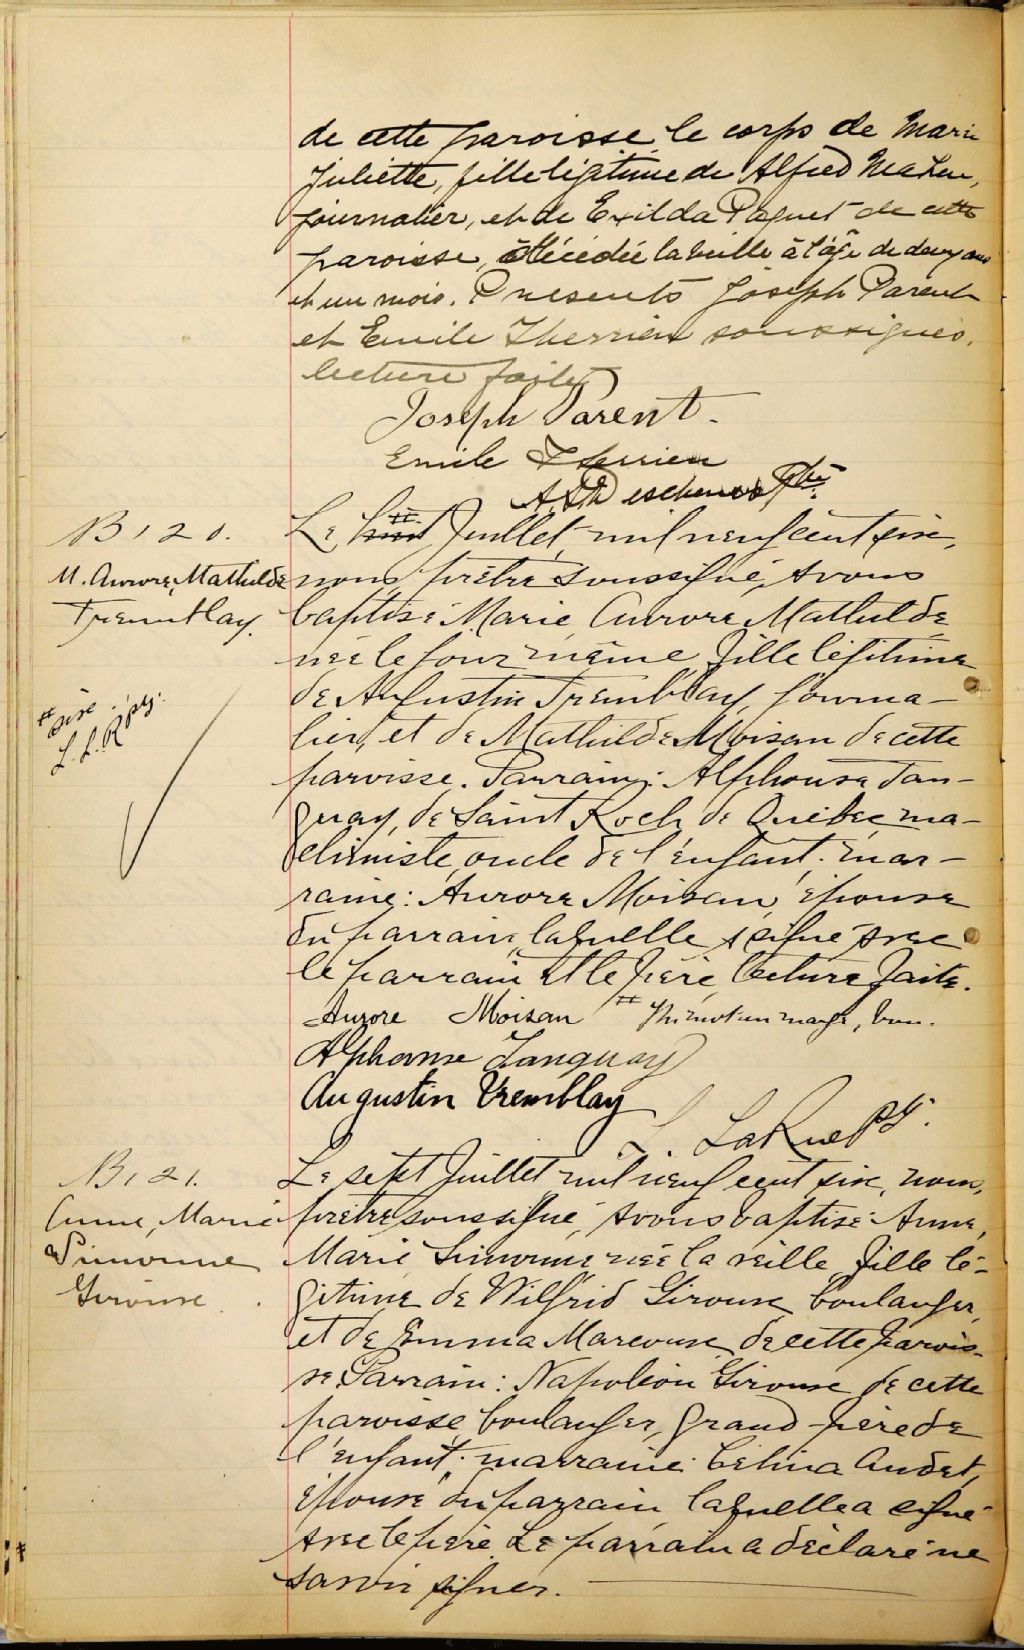 de cette paroisse le corps de Marie
Juliette, fille légitime de Alfred
journalier, et de Exilda Paquet de cette
paroisse, décédée la veille à l'âge de deux ans
et un mois. Présents Joseph Parent
et Emile Therrien soussignés.
lecture faite
Joseph Parent.
Emile Therrien
B 120.
M. Aurore, Mathilde
Tremblay.
Le huit Juillet, mil neuf cent six,
nous, prêtre soussigné, avons
baptisé Marie Aurore Mathilde
née le jour même, fille légitime
de Augustin Tremblay, journa-
lier, et de Mathilde Moisan de cette
paroisse. Parrain: Alphonse Tan-
guay, de Saint Roch de Québec, ma-
chiniste, oncle de l'enfant; mar-
raine: Aurore Moisan, épouse
du parrain, laquelle a signé avec
le parrain et le père, lecture faite.
Aurore Moisan
mot en marge, bon.
Alphonse Tanguay
Augustin Tremblay
L. LaRue
B 121.
Anne, Marie
Simonne
Girouse
Le sept Juillet mil neuf cent six, nous,
prêtre soussigné, avons baptisé Anne,
Marie Simonne née la veille, fille lé-
gitime de Wilfrid Girouse boulanger,
et de Emma Marcouse, de cette parois-
se. Parrain: Napoléon Girouse de cette
paroisse, boulanger, grand-père de
l'enfant; marraine: Célina Audet,
épouse du parrain, laquelle a signé
avec le père. Le parrain a déclaré ne
savoir signer.